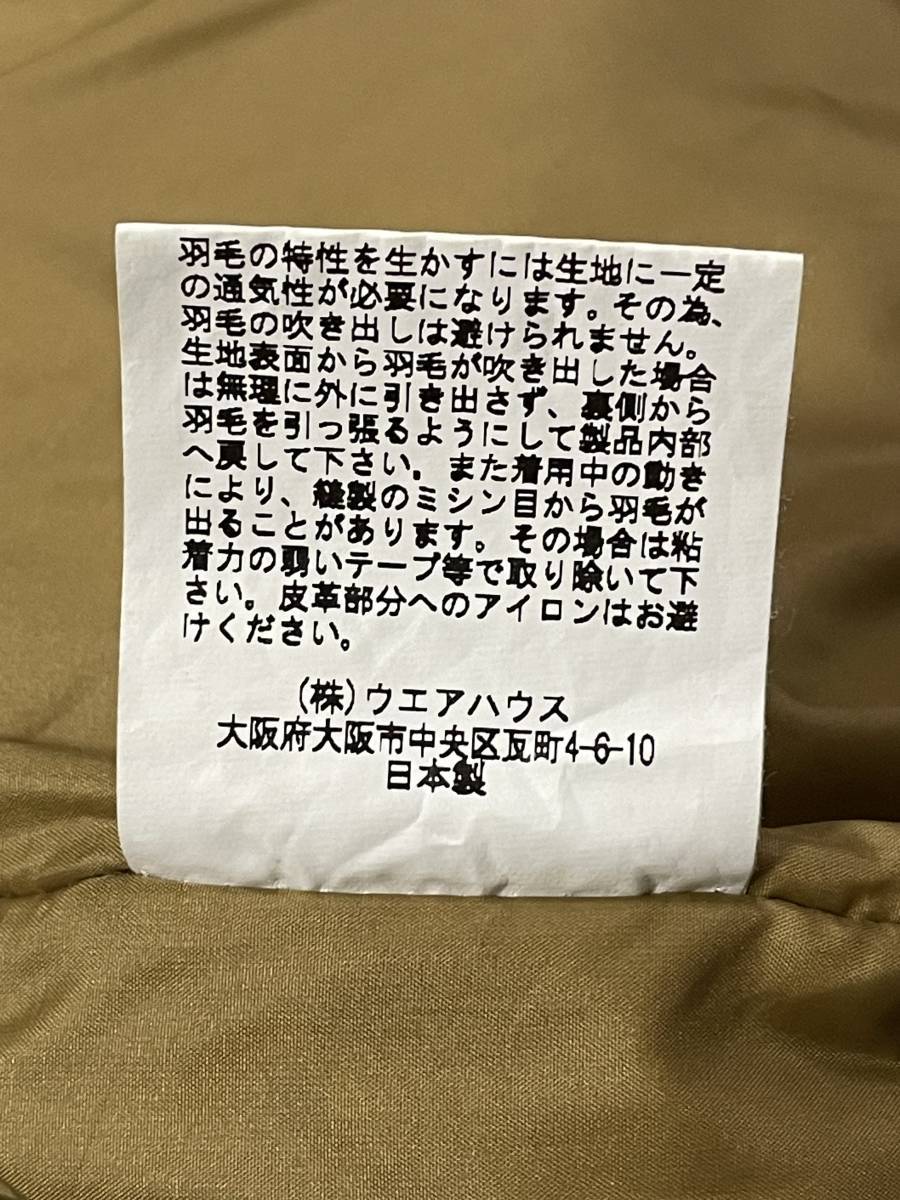 羽毛の特性を生かすには生地に一定
の通気性が必要になります。その為、
羽毛の吹き出しは避けられません。
生地表面から羽毛が吹き出した場合
は無理に外に引き出さず、裏側から
羽毛を引っ張るようにして製品内部
へ戻して下さい。また着用中の動き
により、縫製のミシン目から羽毛が
出ることがあります。その場合は粘
着力の弱いテープ等で取り除いて下
さい。皮革部分へのアイロンはお避
けください。
(株)ウエアハウス
大阪府大阪市中央区瓦町4-6-10
日本製